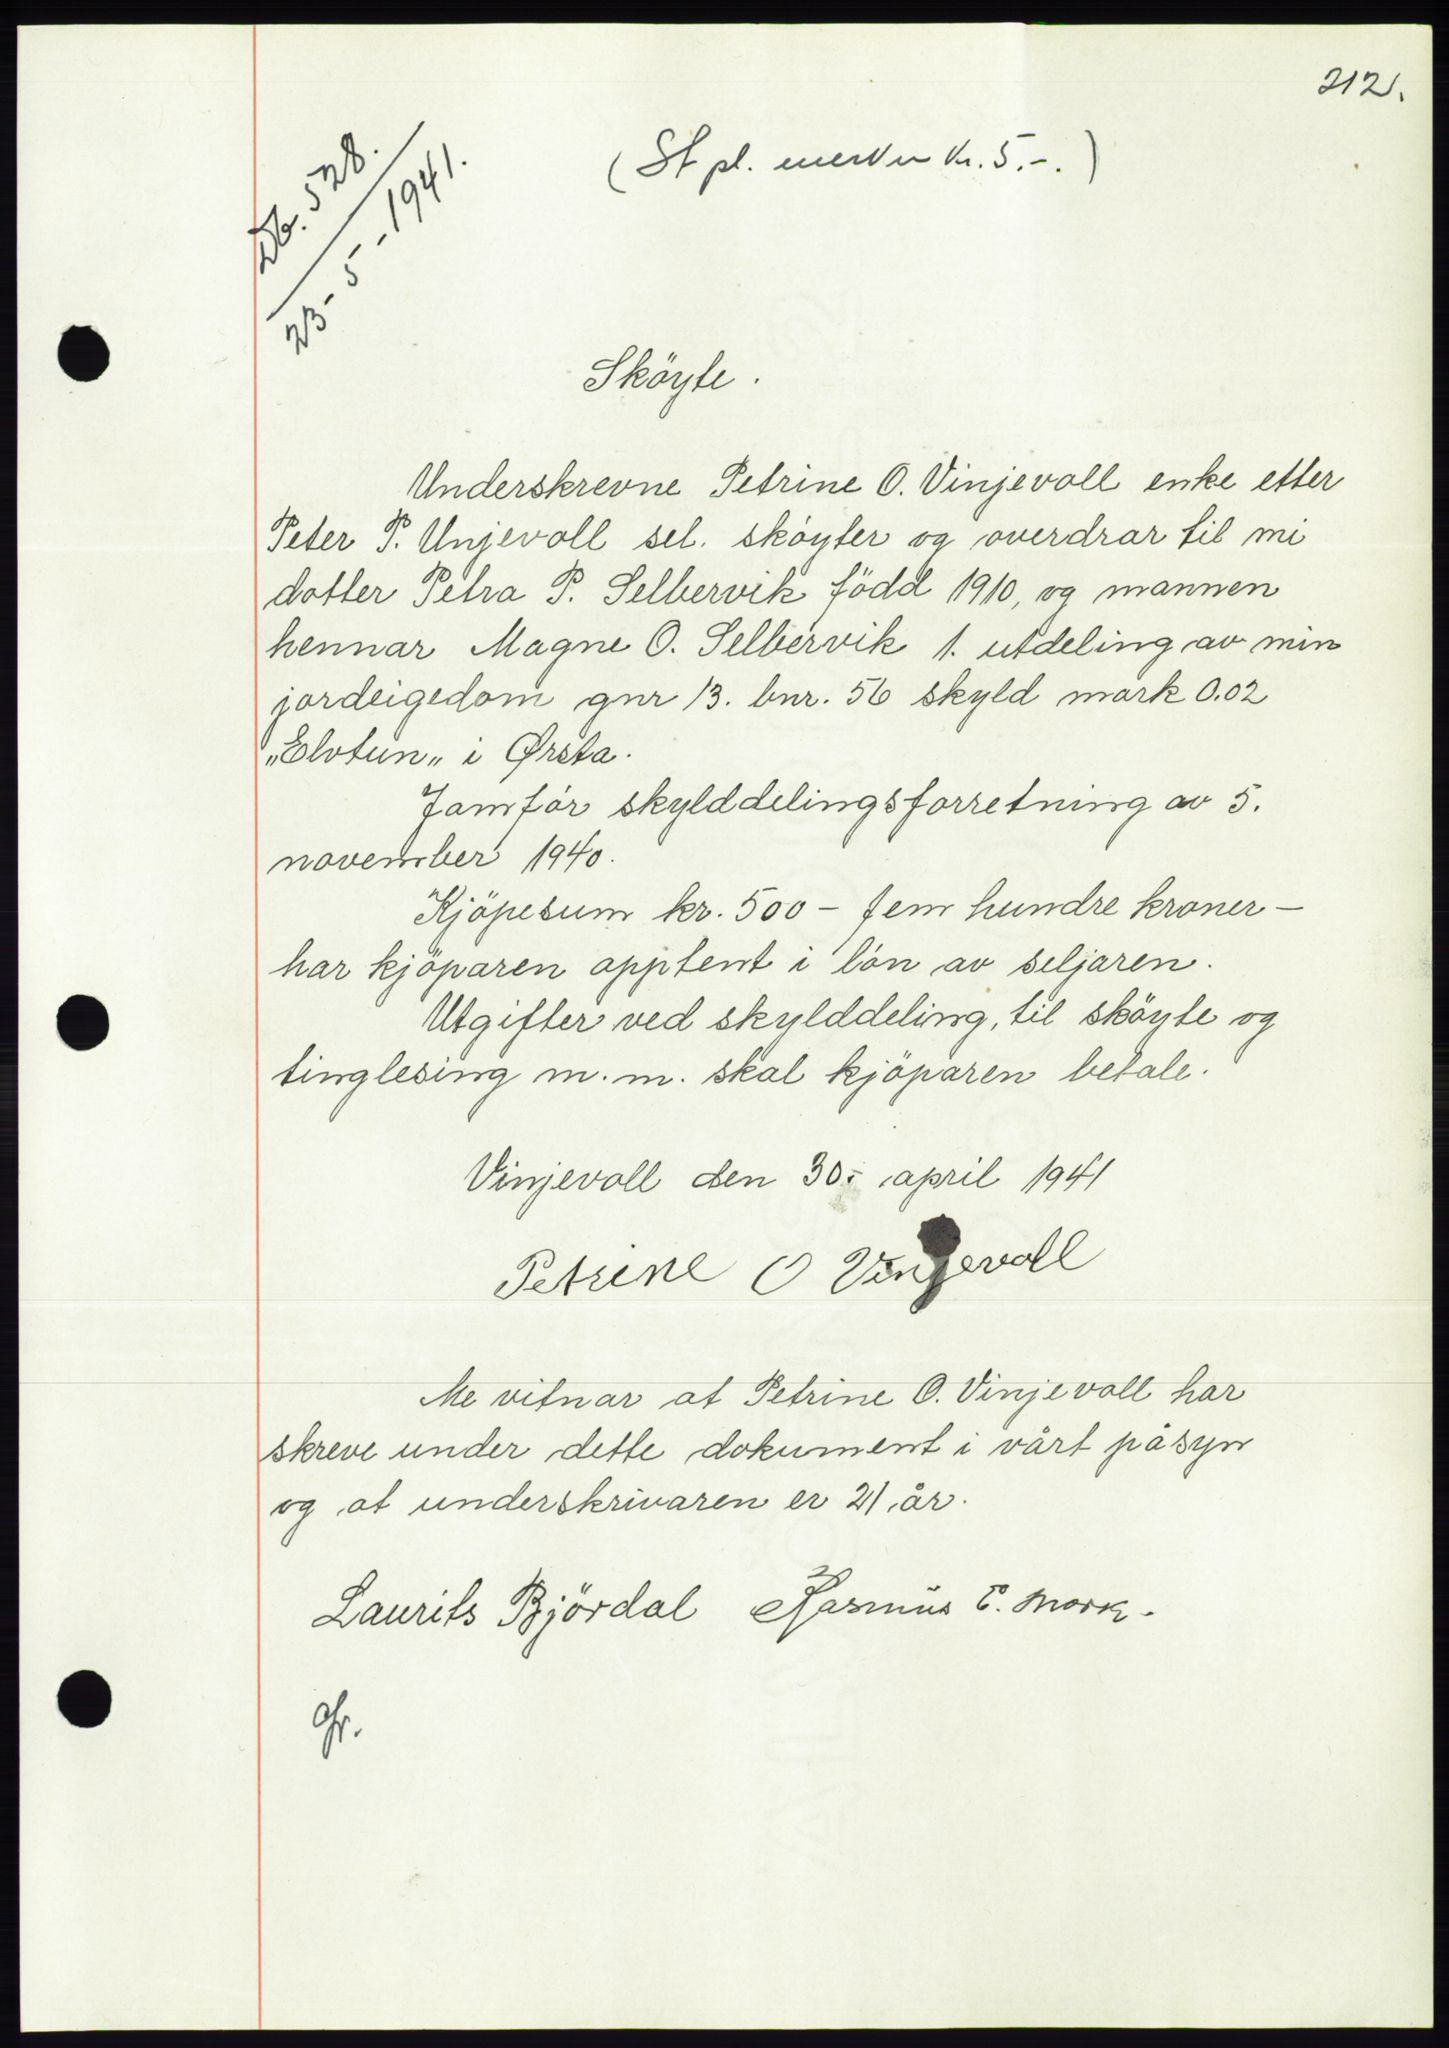 212.
Db. 528.
23-5-1941.
(St pl. merker kr. 5.-.)
Sköyte.
Underskrevne Petrine O. Vinjevoll enke etter
Peter P. Vinjevoll sel. sköyter og overdrar til mi
dotter Petra P. Selbervik född 1910, og mannen
hennar Magne O. Selbervik 1. utdeling av min
jordeigedom gnr 13. bnr. 56 skyld mark 0.02
"Elvtun" i Ørsta.
Jamför skylddelingsforretning av 5.
november 1940.
Kjöpesum kr. 500 - fem hundre kroner -
har kjöparen opptent i lön av seljaren.
Utgifter ved skylddeling, til sköyte og
tinglesing m.m. skal kjöparen betale.
Vinjevoll den 30.- april 1941
Petrine O Vinjevoll
Me vitnar at Petrine O. Vinjevoll har
skreve under dette dokument i vårt påsyn
og at underskrivaren er 21 år.
Laurits Björdal Rasmus E. Mork.